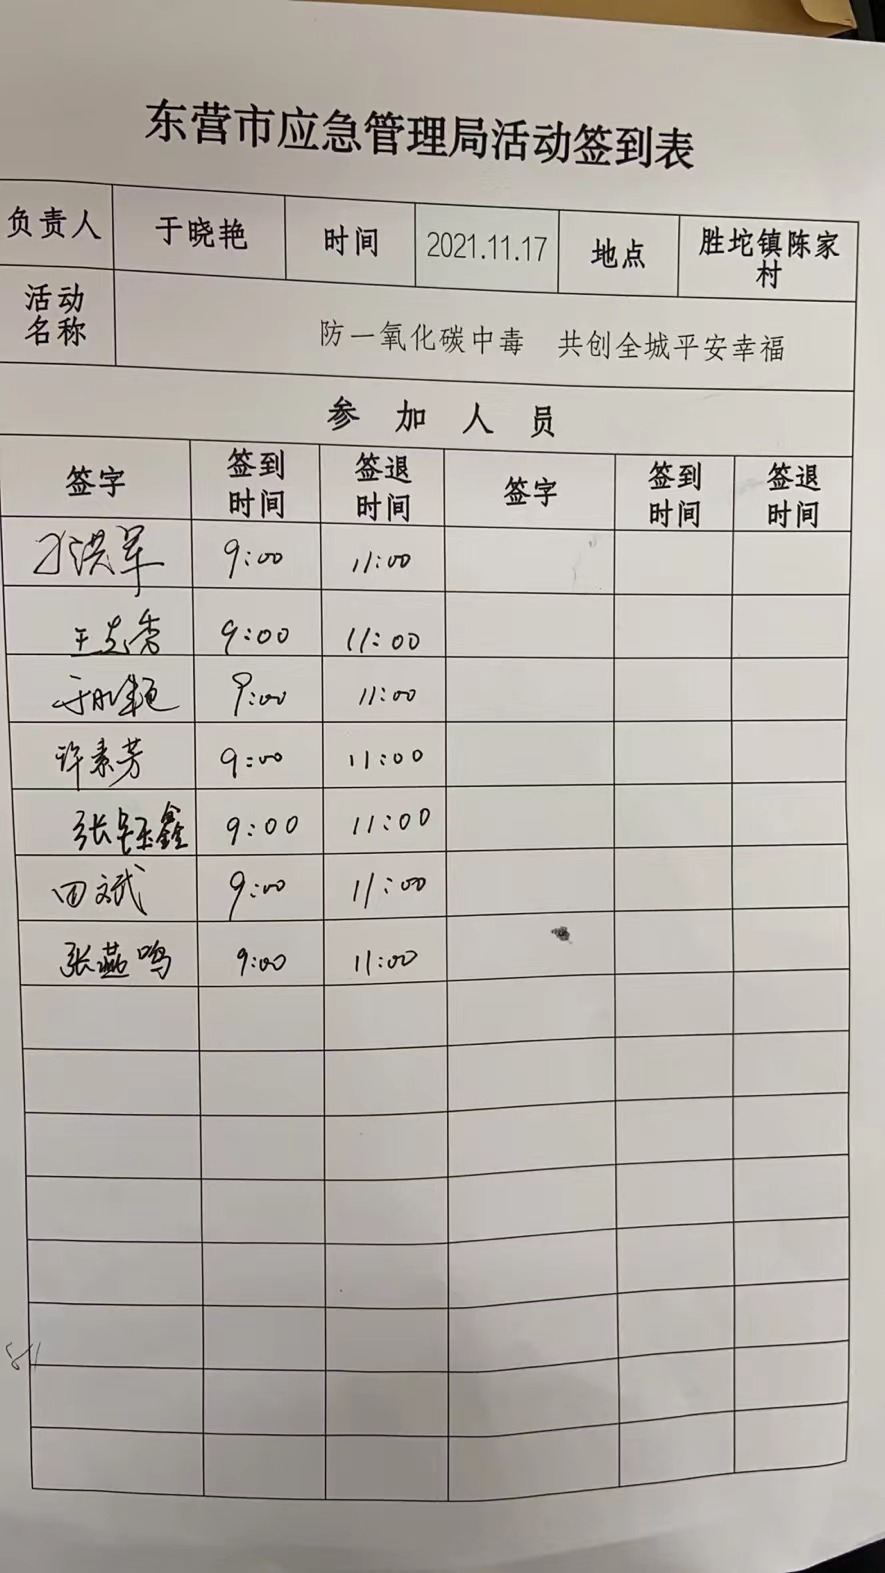 东营市应急管理局活动签到表
负责人 于晓艳 时间 2021.11.17 地点 胜坨镇陈家村
活动名称 防一氧化碳中毒 共创全城平安幸福
参加人员
签字 签到时间 签退时间 签字 签到时间 签退时间
刁洪军 9:00 11:00
王志香 9:00 11:00
于晓艳 9:00 11:00
许素芳 9:00 11:00
张钰鑫 9:00 11:00
田斌 9:00 11:00
张燕鸣 9:00 11:00